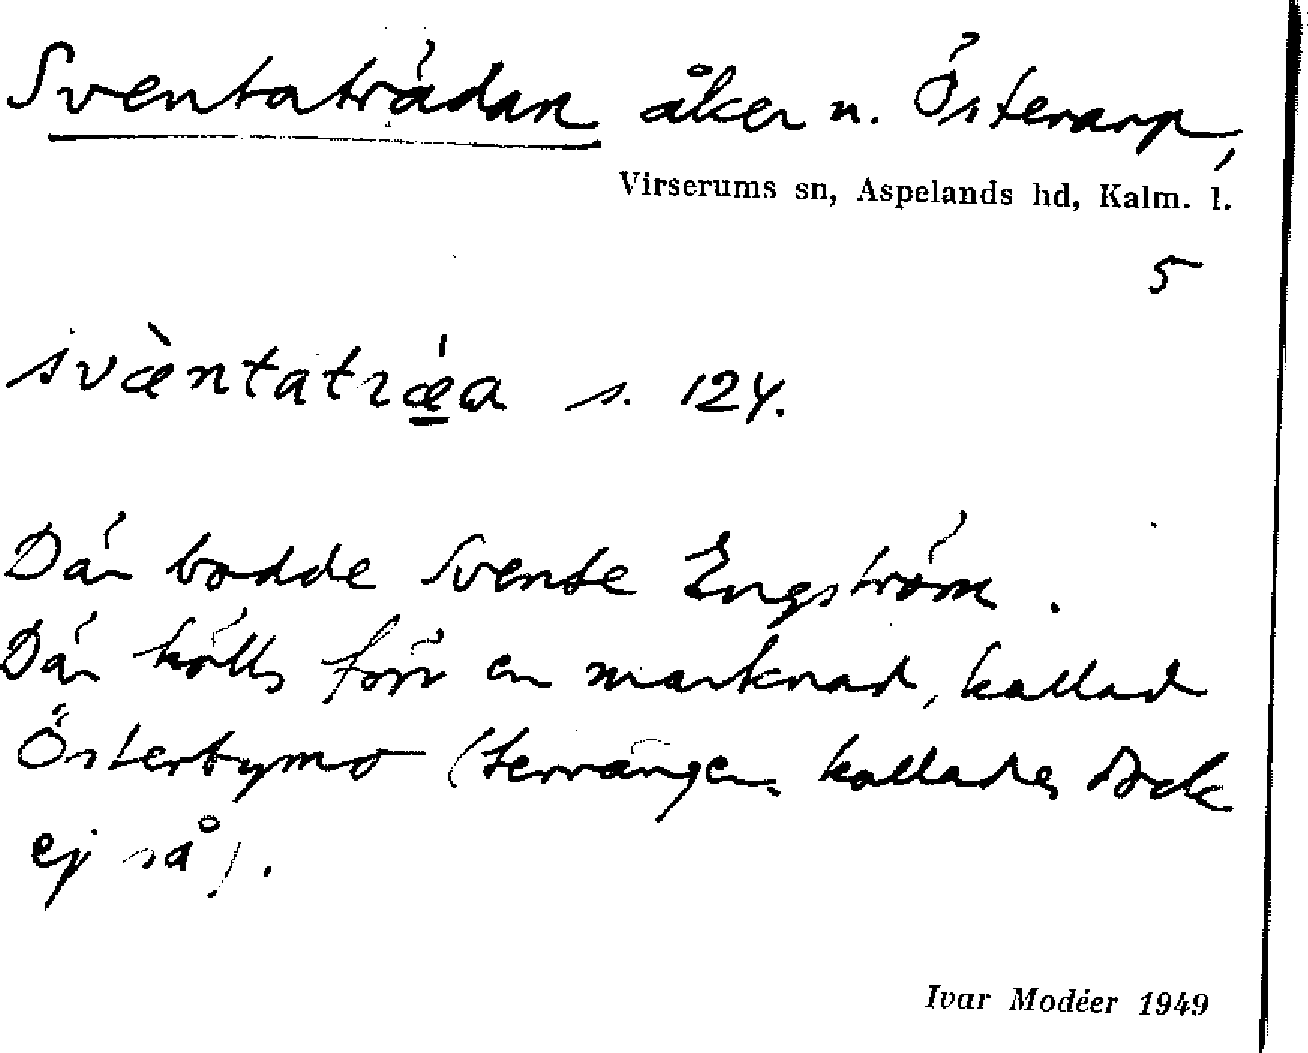 Sventaträdan åker n. Österarp,
Virserums sn, Aspelands hd, Kalm. l.
5
svæ̀ntatrǽ̱a s. 124.
Där bodde Svente Engström.
Där hölls förr en marknad, kallad
Österbymo (terrängen kallades dock
ej så).
Ivar Modéer 1949